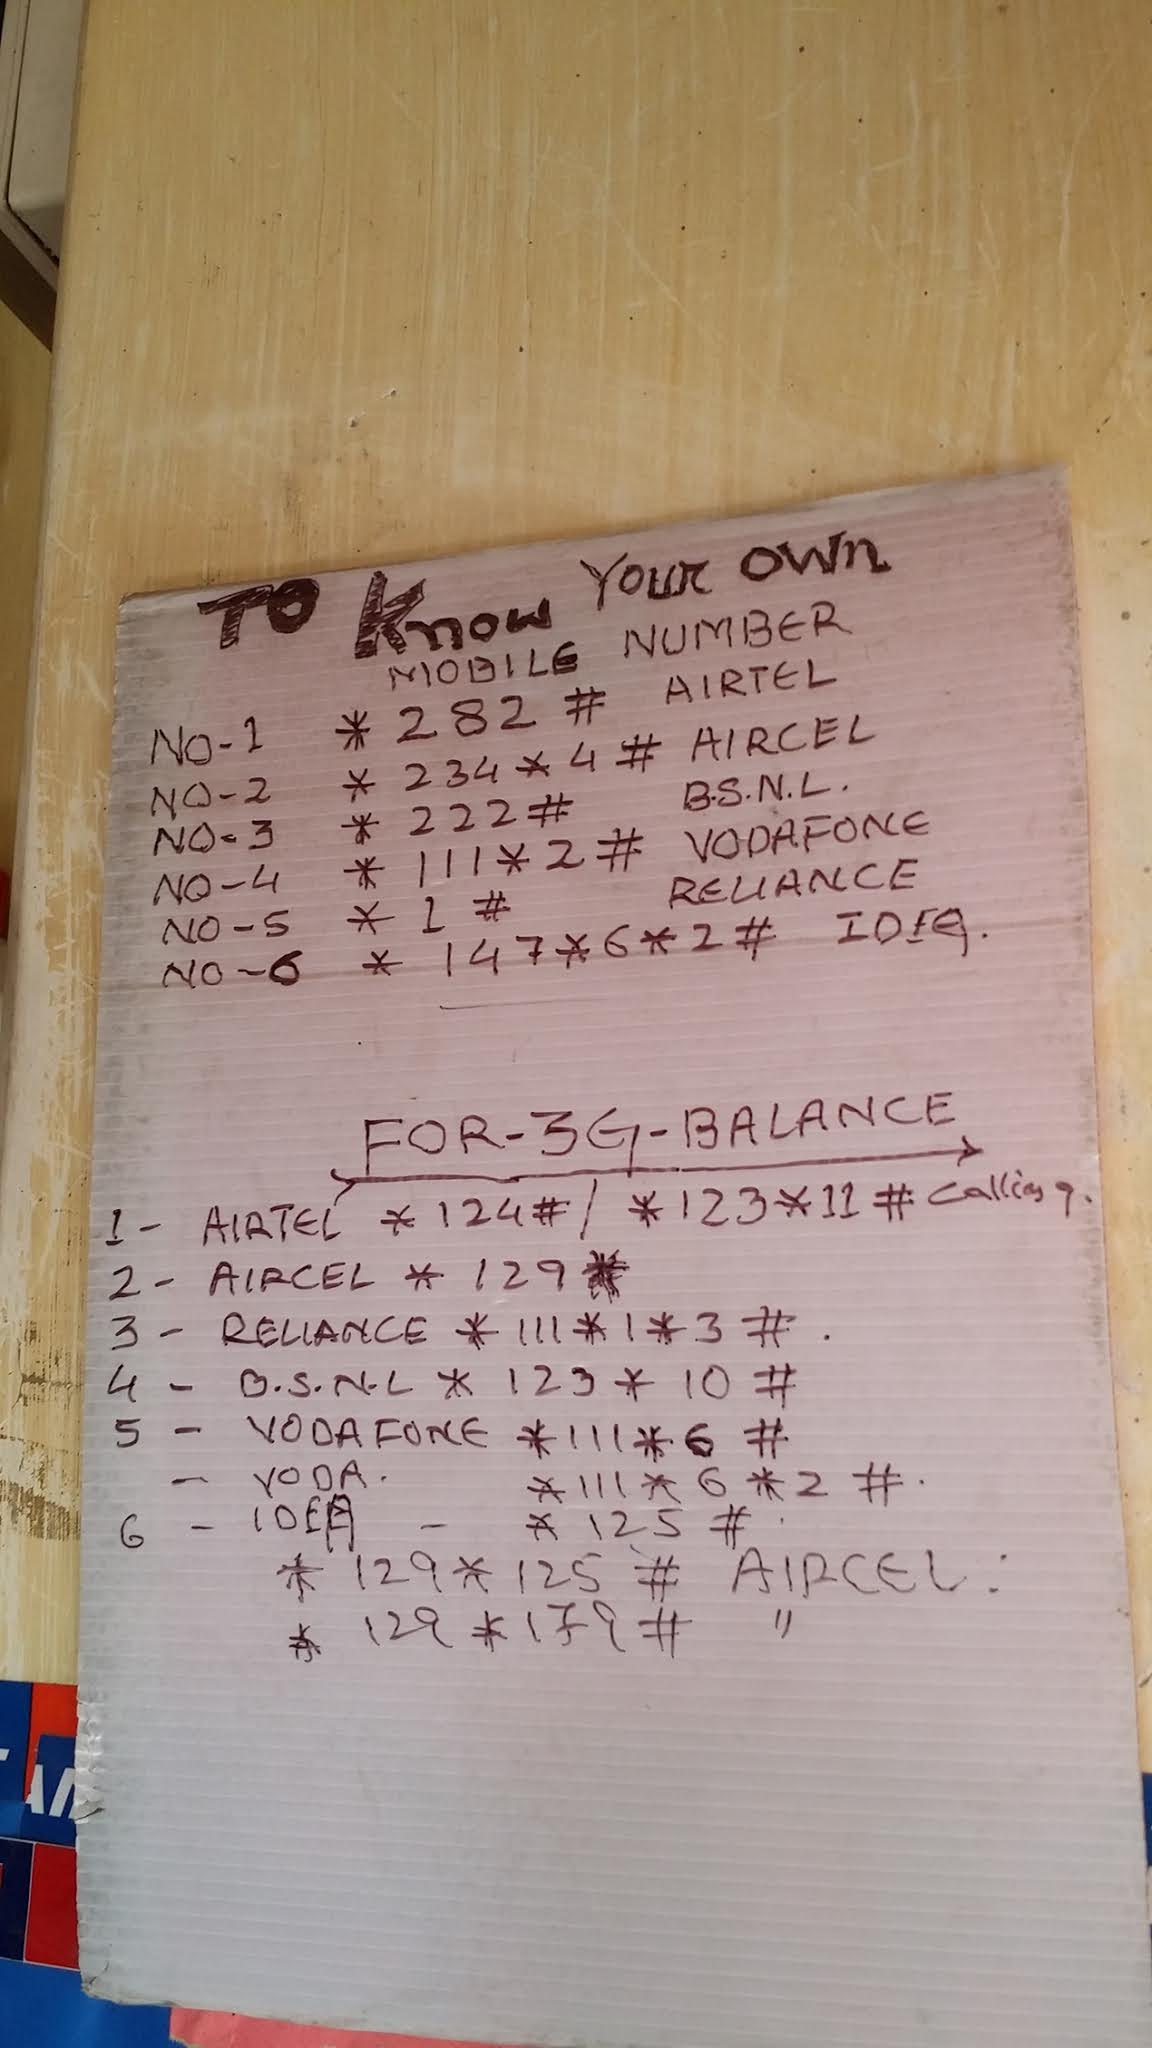 TO Know YOUR OWN
MOBILE NUMBER
NO-1 * 282 # AIRTEL
NO-2 * 234 * 4 # AIRCEL
NO-3 * 222 # B.S.N.L.
NO-4 * 111 * 2 # VODAFONE
NO-5 * 1 # RELIANCE
NO-6 * 147 * 6 * 2 # IDEA.
FOR-3G-BALANCE
1 - AIRTEL * 124 # / * 123 * 11 # Calling.
2 - AIRCEL * 129
3 - RELIANCE * 111 * 1 * 3 # .
4 - B.S.N.L * 123 * 10 #
5 - VODAFONE * 111 * 6 #
- VODA. * 111 * 6 * 2 # .
6 - IDEA - * 125 # .
* 129 * 125 # AIRCEL :
* 129 * 179 # "